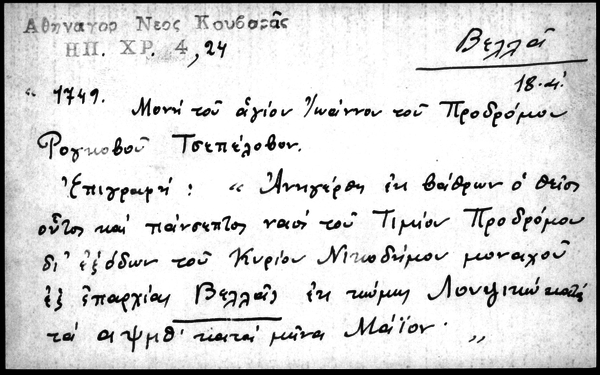 Αθηναγορ Νεος Κουβαρᾶς
ΗΠ. ΧΡ. 4, 24
Βελλᾶ
18.α'
" 1749. Μονή τοῦ ἁγίου Ἰωάννου τοῦ Προδρόμου
Ρογκοβοῦ Τσεπελόβου.
Ἐπιγραφή : " Ἀνηγέρθη ἐκ βάθρων ὁ θεῖος
οὗτος καί πάνσεπτος ναός τοῦ Τιμίου Προδρόμου
δι' ἐξόδων τοῦ Κυρίου Νικοδήμου μοναχοῦ
ἐξ ἐπαρχίας Βελλᾶς ἐκ κώμης κατά
τά αψμθ' κατά μῆνα Μάϊον. "